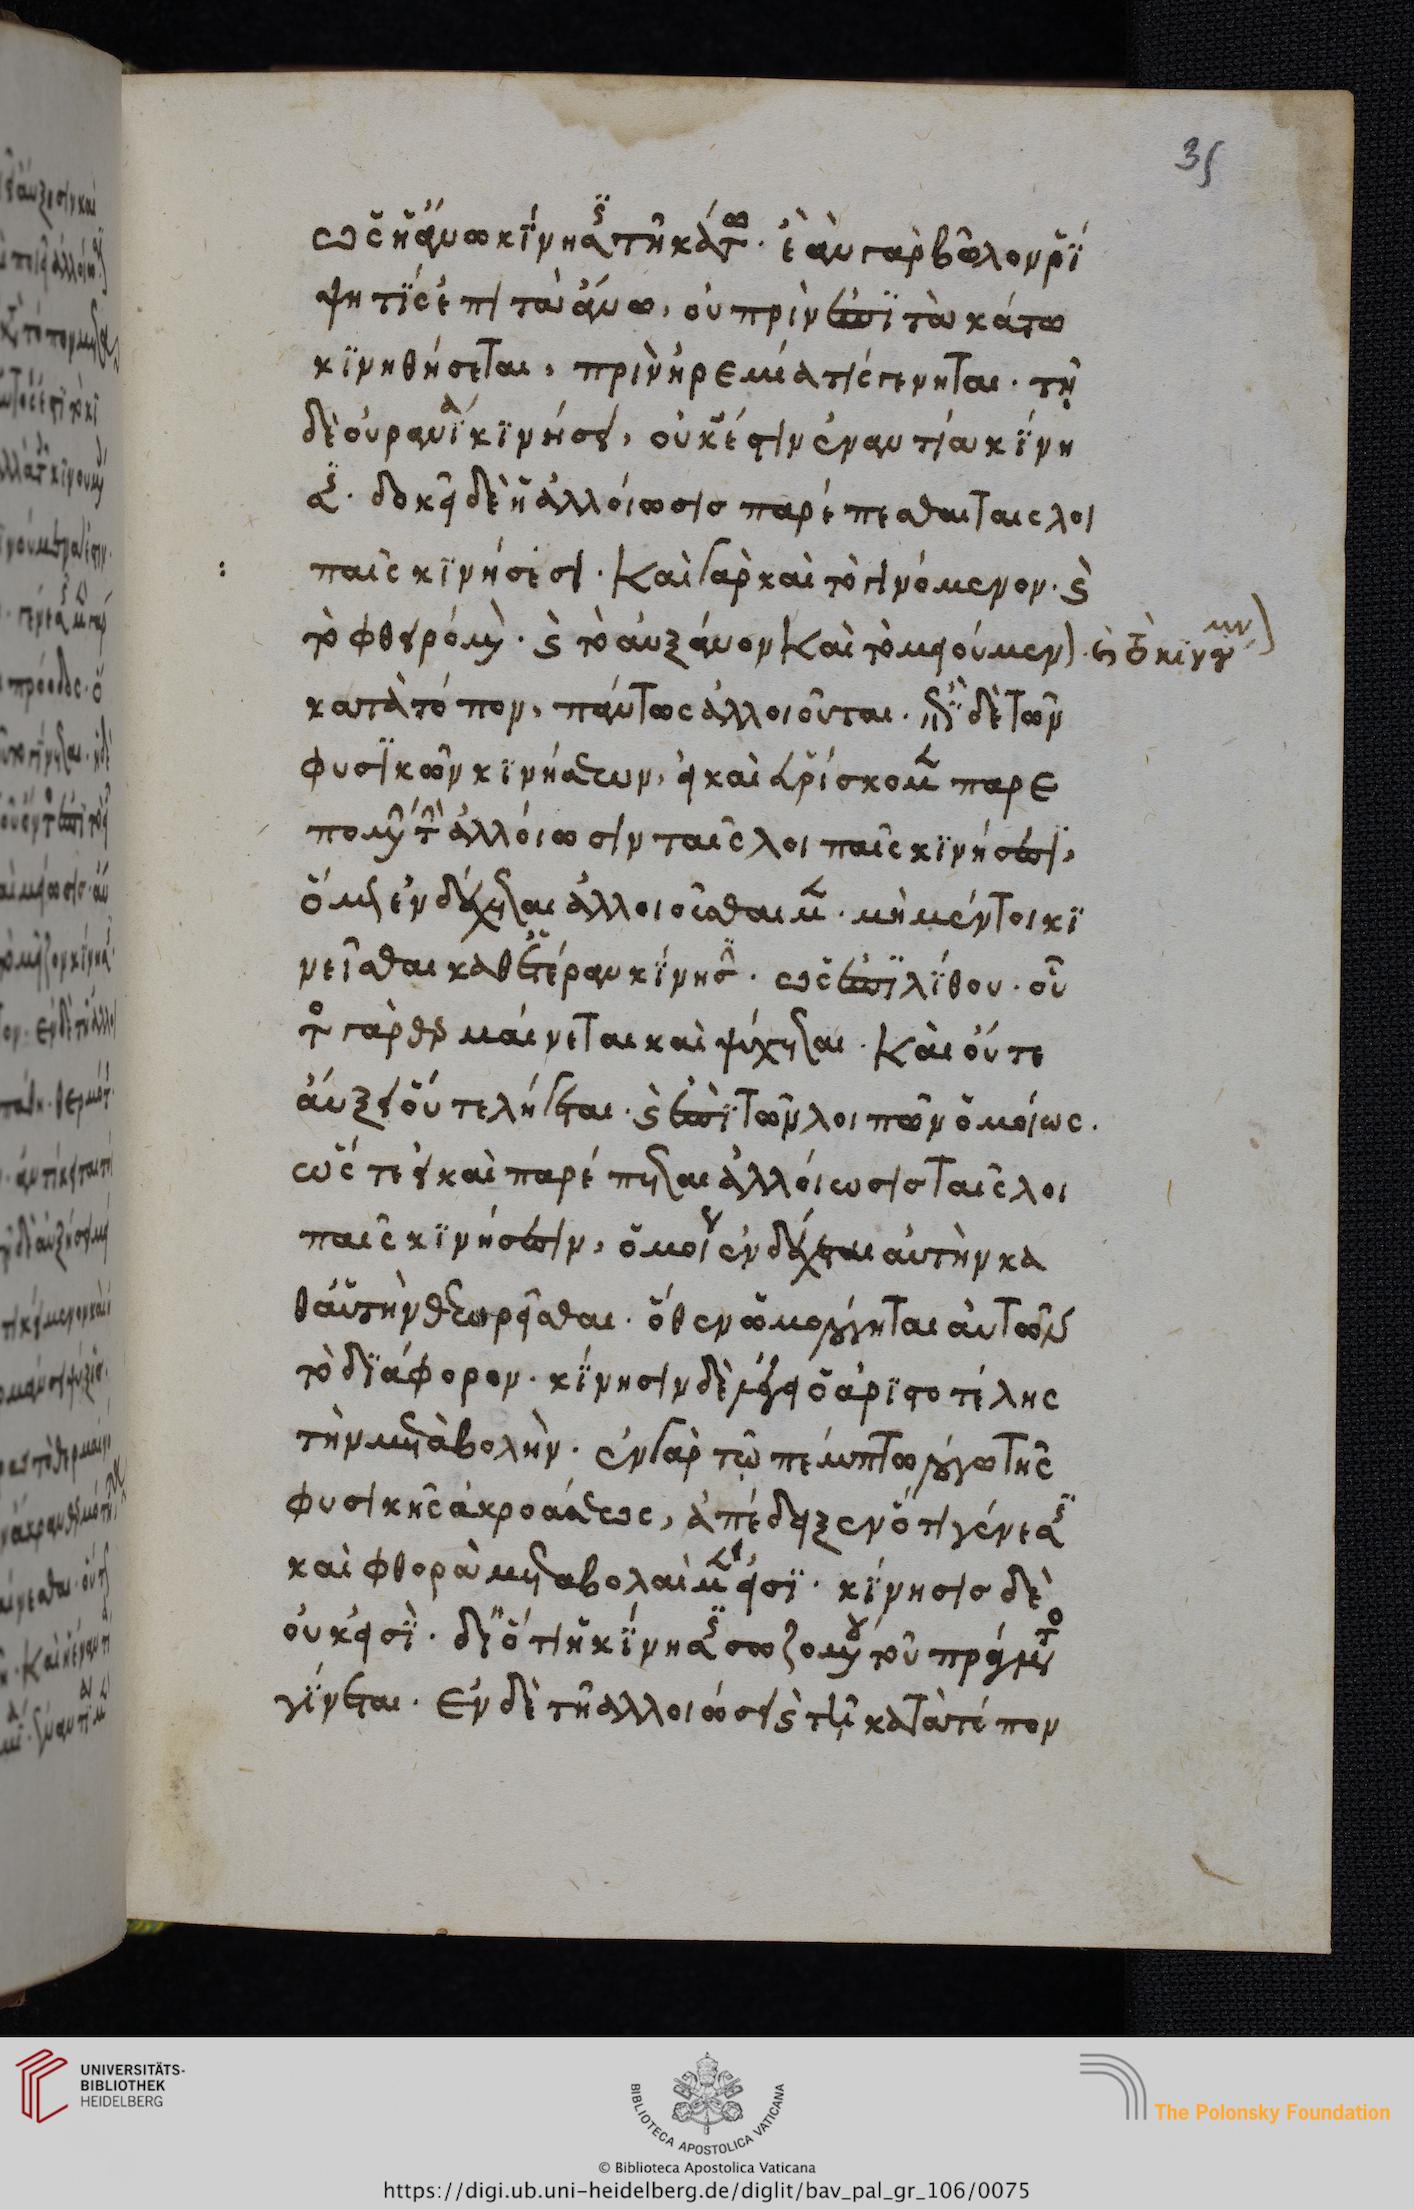 35
ὡς ἡ ἄνω κίνησις τῆ κάτω· ἐὰν γὰρ βῶλον ῥί
ψη τίς ἐπὶ τὰ ἄνω, οὐ πρὶν ἐπὶ τὰ κάτω
κινηθήσεται, πρὶν ἠρεμία τίς γένηται· τῆ
δὲ οὐρανία κινήσει, οὐκ ἔστιν ἐναντία κίνη
σις· δοκεῖ δὲ ἡ ἀλλοίωσις παρέπεσθαι ταῖς λοι
παῖς κινήσεσι· καὶ γὰρ καὶ τὸ γινόμενον· καὶ
τὸ φθειρόμενον· καὶ τὸ αὐξάνον καὶ τὸ μειούμενον· καὶ τὸ κινούμενον
κατὰ τόπον, πάντως ἀλλοιοῦνται· διὰ δὲ τῶν
φυσικῶν κινήσεων, εἰ καὶ εὑρίσκομεν παρε
πομένην τὴν ἀλλοίωσιν ταῖς λοιπαῖς κινήσεσι,
ὅμως ἐνδέχεται ἀλλοιοῦσθαι μὲν· μὴ μέντοι κι
νεῖσθαι καθ' ἑτέραν κίνησιν· ὡς ἐπὶ λίθου· οὗ
τος γὰρ θερμαίνεται καὶ ψύχεται· καὶ οὔτε
αὔξει οὔτε λήγεται· καὶ ἐπὶ τῶν λοιπῶν ὁμοίως·
ὥς τε εἰ καὶ παρέπεται ἀλλοίωσις ταῖς λοι
παῖς κινήσεσιν, ὅμως ἐνδέχεται αὐτὴν κα
θ' αὑτὴν θεωρεῖσθαι· ὅθεν ὡμολόγηται αὐτῶν
τὸ διάφορον· κίνησιν δὲ λέγει ὁ ἀριστοτέλης
τὴν μεταβολὴν· ἐν γὰρ τῶ πέμπτω λόγω τῆς
φυσικῆς ἀκροάσεως, ἀπέδειξεν ὅτι γένεσις
καὶ φθορὰ μεταβολαὶ μέν εἰσι· κίνησις δὲ
οὐκ εἰσὶ· διότι ἡ κίνησις σωζομένου τοῦ πράγματος
γίνεται· ἐν δὲ τῆ ἀλλοιώσει καὶ τῆ κατὰ τόπον
UNIVERSITÄTS-
BIBLIOTHEK
HEIDELBERG
BIBLIOTECA APOSTOLICA VATICANA
The Polonsky Foundation
© Biblioteca Apostolica Vaticana
https://digi.ub.uni-heidelberg.de/diglit/bav_pal_gr_106/0075